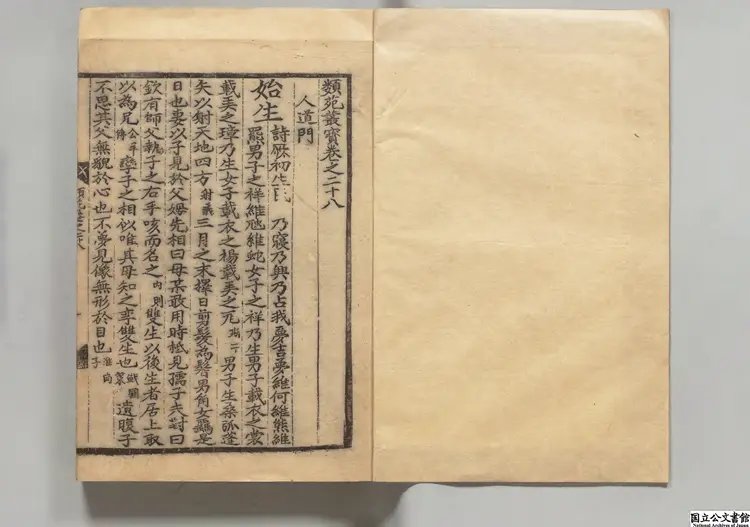 類苑叢寶卷之二十八
人道門
始生 詩厥初生民 乃寢乃興乃占我夢吉夢維何維熊維
羆男子之祥維虺維蛇女子之祥乃生男子載衣之裳
載弄之璋乃生女子載衣之裼載弄之瓦 男子生桑弧蓬
矢以射天地四方射義三月之末擇日剪髮爲鬌男角女羈是
日也妻以子見於父姆先相曰母某敢用時秪見孺子夫對曰
欽有帥父執子之右手咳而名之內則雙生以後生者居上取
以爲兄公羊傳孿子之相似唯其母知之孿雙生也 遺腹子
不思其父無貌於心也不夢見像無形於目也淮南子
國立公文書館
National Archives of Japan